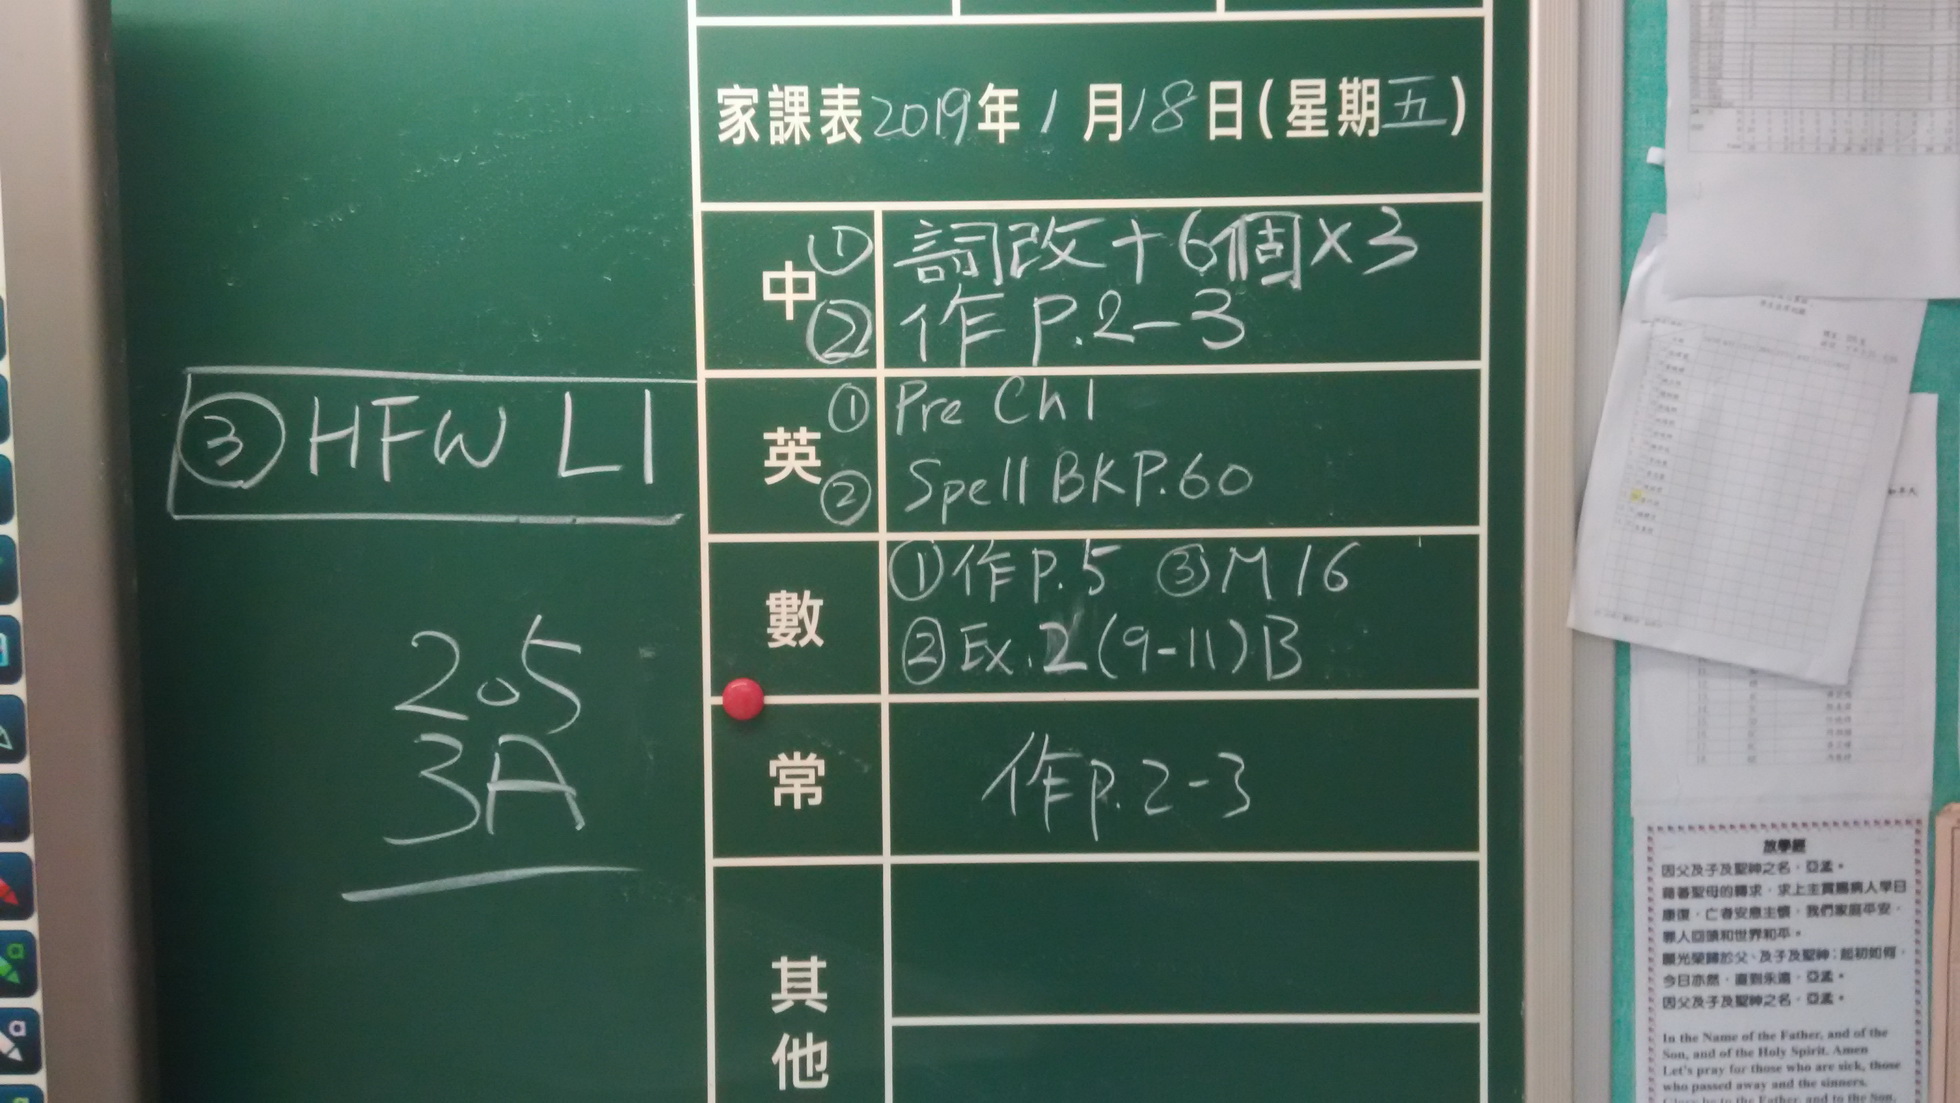 家課表2019年1月18日(星期五)
中
① 詞改+6個×3
② 作P.2-3
英
① Pre Ch1
② Spell BK P.60
③ HFW L1
數
① 作P.5 ③ M16
② Ex.2 (9-11) B
常
作P.2-3
其他
205
3A
放學經
因父及子及聖神之名，亞孟。
藉著聖母的轉求，求上主賞賜病人早日
康復，亡者安息主懷，我們家庭平安，
罪人回頭和世界和平。
願光榮歸於父、及子及聖神；起初如何，
今日亦然，直到永遠，亞孟。
因父及子及聖神之名，亞孟。
In the Name of the Father, and of the
Son, and of the Holy Spirit. Amen
Let's pray for those who are sick, those
who passed away and the sinners.
Glory be to the Father, and to the Son,